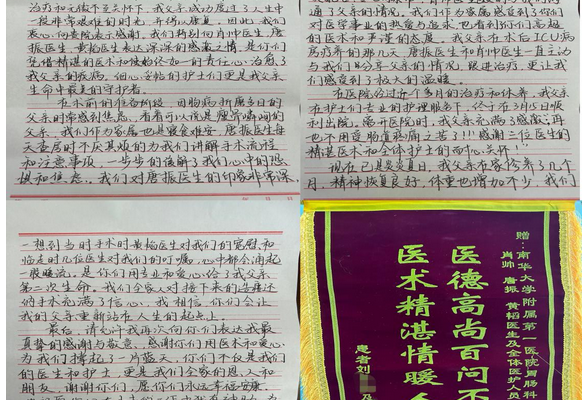 治疗和无微不至关怀下，我父亲成功度过了人生中
一段非常艰难的时光，并得以康复。因此，我们
衷心向贵院表示感谢，我们特别向肖帅医生，唐
振医生，黄韬医生表达深深的感激之情，是你们
凭借精湛的医术和使始终如一的责任心，治愈了
我父亲的疾病。细心妥帖的护士们更是我父亲
生命中最美的守护者。
在术前的准备阶段，因胸痛折磨多日的
父亲，时常感到焦急，看着
父亲，我们作为家属也是寝食难安，唐振医生每
天查房时不厌其烦的为我们讲解手术流程
和注意事项，一步步的缓解了我们心中的恐
惧和焦虑。我们对唐振医生的印象非常深
通了父亲的情况。我们作为家属感受到了你们
对医学事业的热爱与追求，也看到你们高超
的医术和严谨的态度，我父亲在术后ICU病
房疗养的那几天，唐振医生和肖帅医生一直主动
与我们分享父亲的情况，跟进治疗，更让我
们感受到了极大的温暖。
在医院经过近个多月的治疗和休养，我父亲
在护士们专业的护理服务下，终于在3月5日顺
利出院。离开医院时，我父亲充满了感激，再
也不用受肠道疼痛之苦了!!!感谢三位医生的
精湛医术和全体护士们的细心关怀!
现在已是炎炎夏日，我父亲在家修养了几个
月，精神恢复良好，体重也增加不少，我们
一想到当时手术时黄韬医生对我们的宽慰，和
临走时几位医生对我们的叮嘱，心中都会涌起
一股暖流。是你们用专业和爱心给了我父亲
第二次生命。我们全家人对接下来的造瘘还
纳手术充满了信心，我相信，你们会让
我们父亲重新站在人生的起点上。
最后，请允许我再次向你们表达我最
真挚的感谢与敬意，感谢你们用医术和爱心，
为我们撑起了一片蓝天，你们不仅是我们
的医生和护士，更是我们全家的恩人和
朋友，谢谢你们，愿你们永远幸福安康，
赠：南华大学附属第一医院胃肠科
肖帅 唐振 黄韬医生及全体医护人员
医德高尚百问不
医术精湛情暖人
患者刘
及